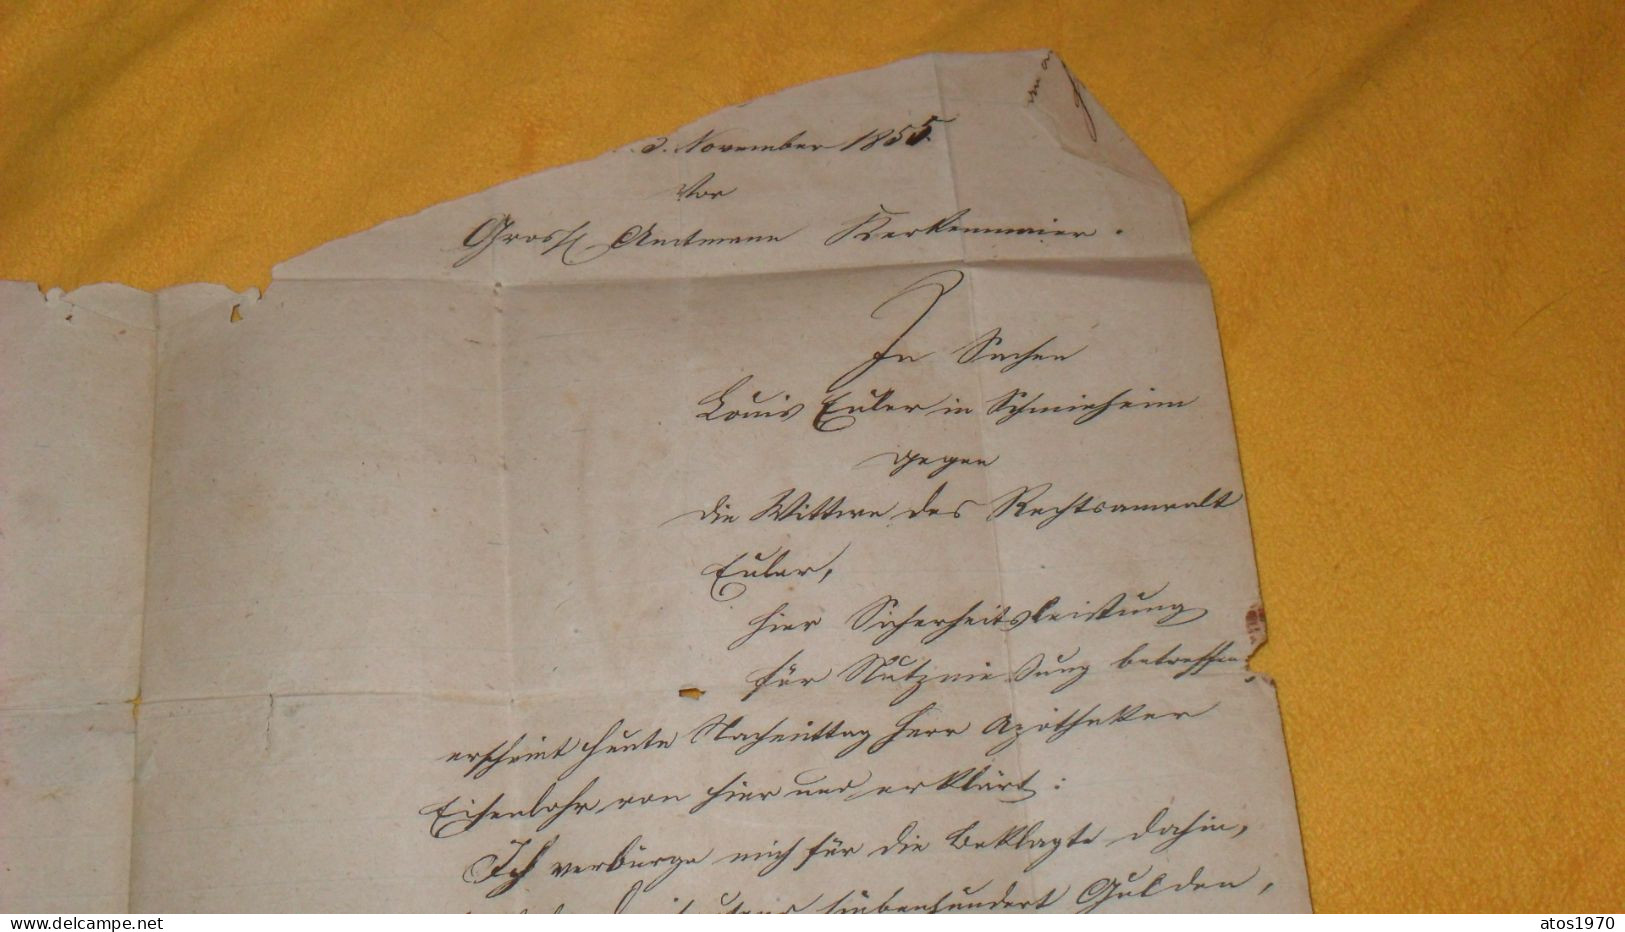 3. November 1855.
Vor
Grossh Amtmann Kerkenmaier.
In Sachen
Louis Euler in Schmieheim
gegen
die Wittwe des Rechtsanwalt
Euler,
hier Sicherheitsleistung
für Nutznießung betreffend
erscheint heute Nachmittag Herr Apotheker
Eisenlohr von hier und erklärt:
Ich verbürge mich für die Beklagte dahin,
siebenhundert Gulden,
delcampe.net
atos1970